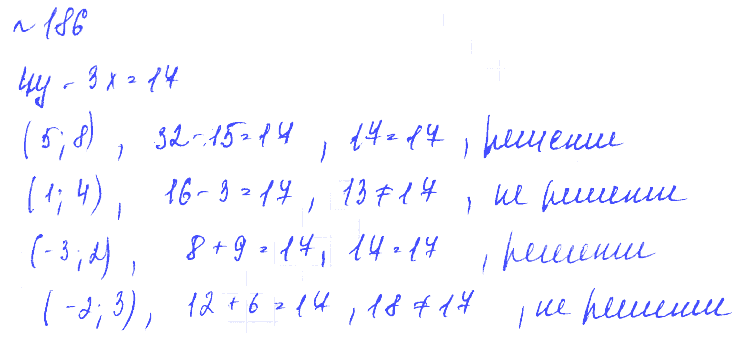 ~ 186
4y - 3x = 17
(5; 8), 32 - 15 = 17, 17 = 17, решение
(1; 4), 16 - 3 = 17, 13 ≠ 17, не решение
(-3; 2), 8 + 9 = 17, 17 = 17, решение
(-2; 3), 12 + 6 = 17, 18 ≠ 17, не решение